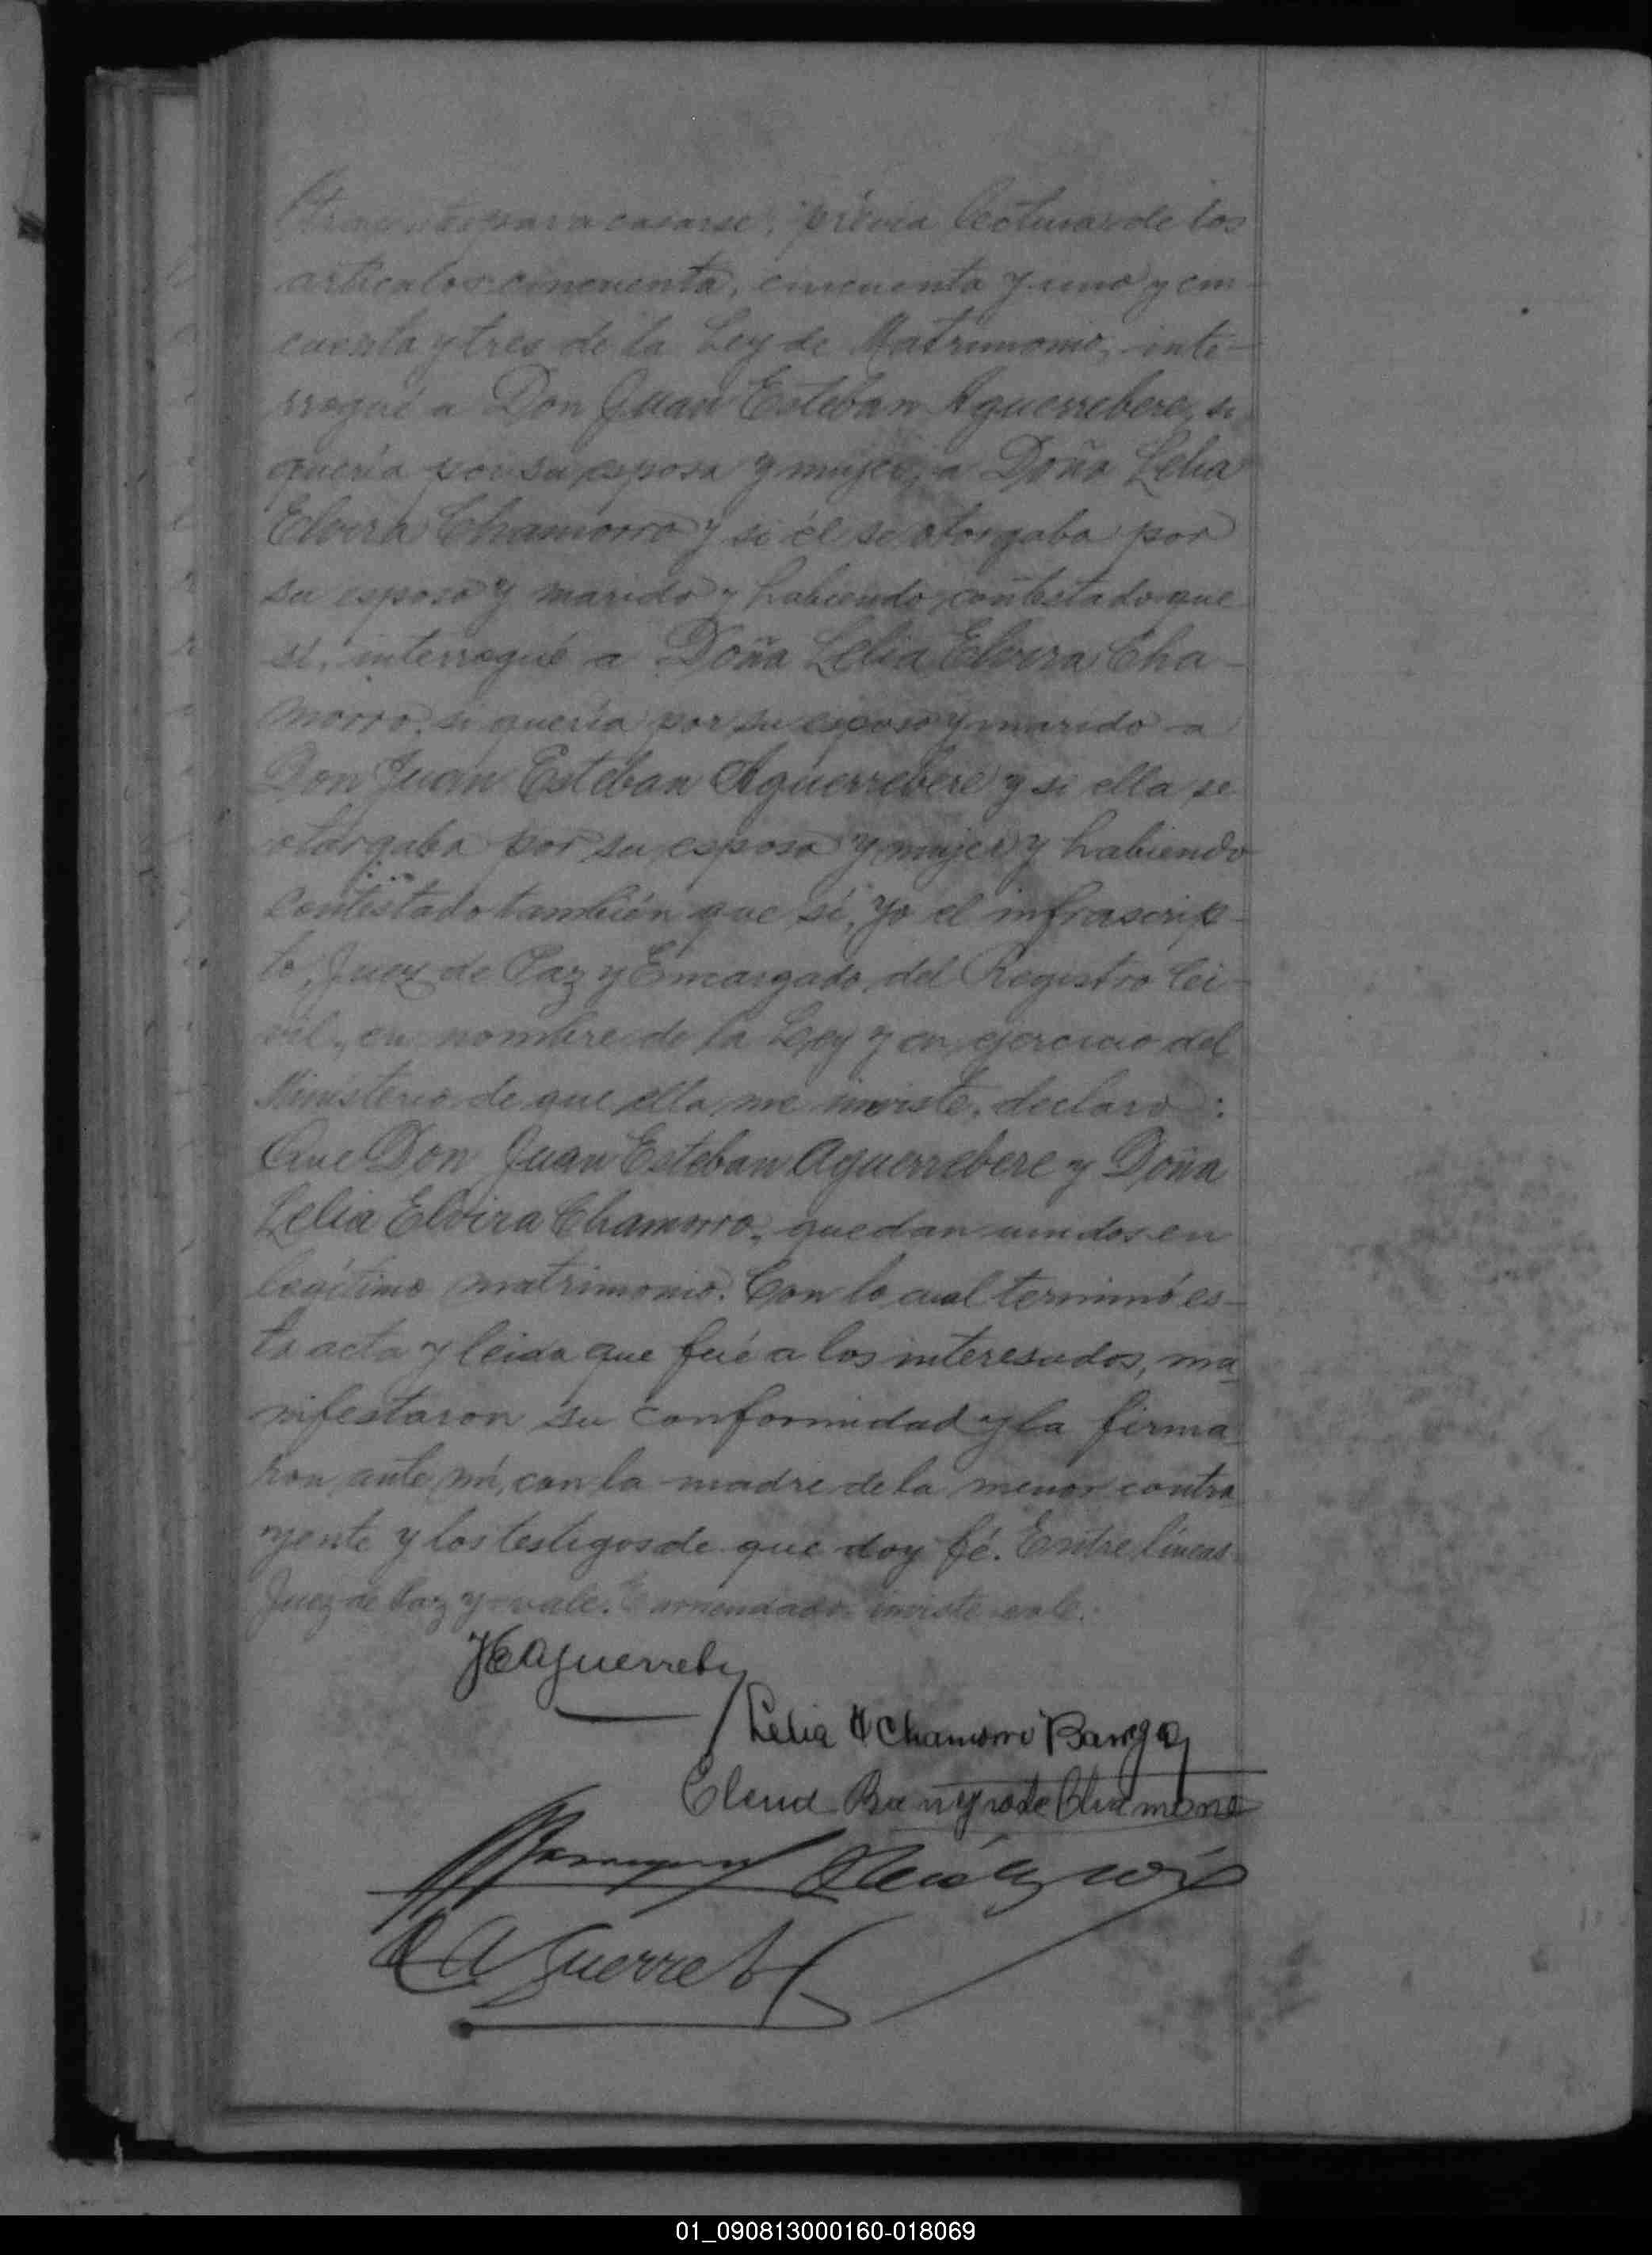 para casarse, previa lectura de los
artículos cincuenta, cincuenta y uno y cin-
cuenta y tres de la Ley de Matrimonio, inte-
rrogué a Don Juan Esteban Aguerrebere, si
quería por su esposa y mujer, a Doña Lelia
Elvira Chamorro y si él se otorgaba por
su esposo y marido y habiendo contestado que
sí, interrogué a Doña Lelia Elvira Cha-
morro, si quería por su esposo y marido a
Don Juan Esteban Aguerrebere y si ella se
otorgaba por su esposa y mujer y habiendo
contestado también que sí, yo el infrascrip-
to, Juez de Paz y Encargado del Registro Ci-
vil, en nombre de la Ley y en ejercicio del
Ministerio de que ella me inviste, declaro:
Que Don Juan Esteban Aguerrebere y Doña
Lelia Elvira Chamorro, quedan unidos en
legítimo matrimonio. Con lo cual terminó es-
ta acta y leida que fué a los interesados, ma-
nifestaron su conformidad y la firma-
ron ante mí, con la madre de la menor contra-
yente y los testigos de que doy fé. Entre líneas
Juez de Paz y=vale. Enmendado inviste vale.
JEAguerreb
Lelia Chamorro
de Chamorro
Aguerreb
01_090813000160-018069